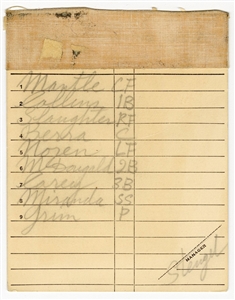 1 Mantle CF
2 Collins 1B
3 Slaughter RF
4 Berra C
5 Noren LF
6 McDougald 2B
7 Carey 3B
8 Miranda SS
9 Grim P
MANAGER
Stengel